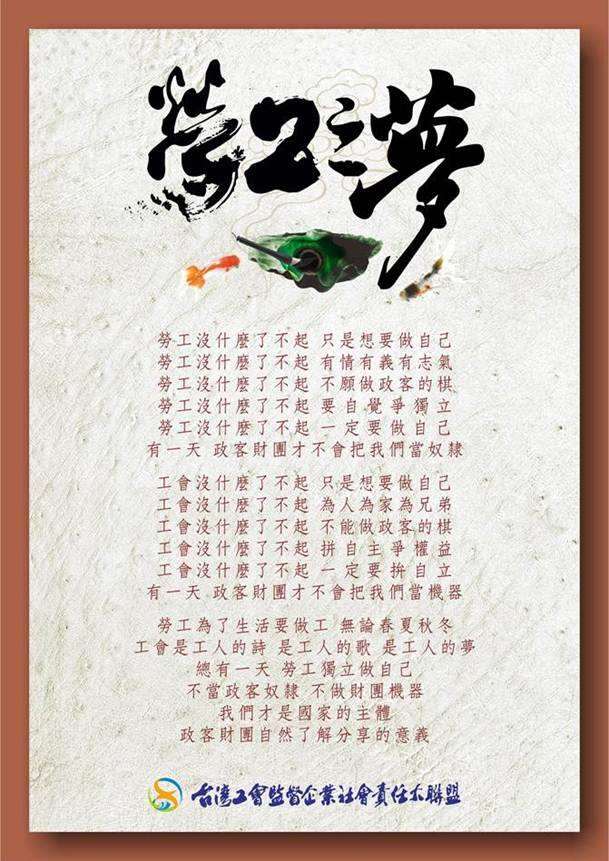 勞工之夢
勞工沒什麼了不起 只是想要做自己
勞工沒什麼了不起 有情有義有志氣
勞工沒什麼了不起 不願做政客的棋
勞工沒什麼了不起 要自覺爭獨立
勞工沒什麼了不起 一定要做自己
有一天 政客財團才不會把我們當奴隸
工會沒什麼了不起 只是想要做自己
工會沒什麼了不起 為人為家為兄弟
工會沒什麼了不起 不能做政客的棋
工會沒什麼了不起 拼自主爭權益
工會沒什麼了不起 一定要拚自立
有一天 政客財團才不會把我們當機器
勞工為了生活要做工 無論春夏秋冬
工會是工人的詩 是工人的歌 是工人的夢
總有一天 勞工獨立做自己
不當政客奴隸 不做財團機器
我們才是國家的主體
政客財團自然了解分享的意義
台灣工會監督企業社會責任大聯盟